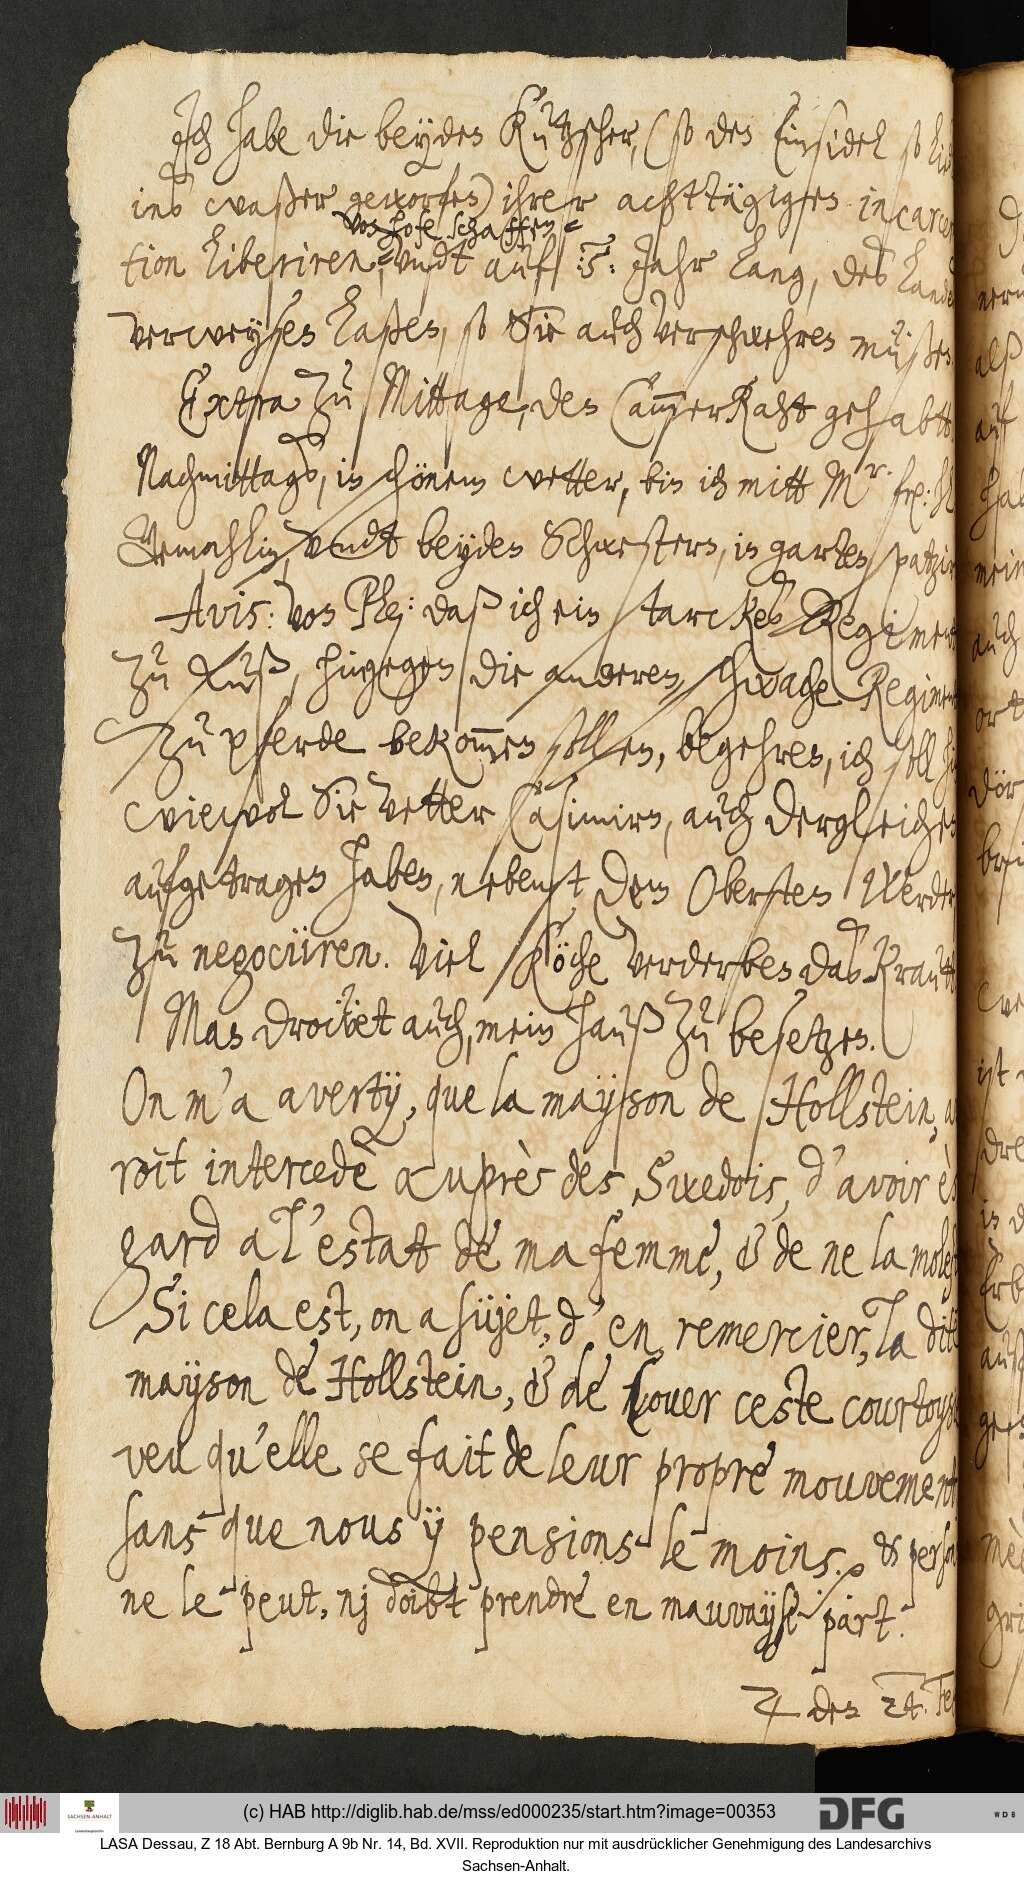 Ich habe die beyden Kützscher, (so den Einsidel so
ins waßer geworfen) ihrer achttägigen incarcer
von hofe schaffen
tion liberiren, undt auf :5: Jahr lang, des Lande
verweysen laßen, so Sie auch verschwehren müßen.
Extra zu Mittage, den CammerRaht gehabtt.
Nachmittags, in schönem wetter, bin ich mitt Mr. frl: h
Gemahlin, undt beyden Schwestern, in garten spatzir
Avis: von Plez: daß ich ein starckes Regimen
zu Fuß, hingegen die anderen, schwache Regimen
zu pferde bekommen sollen, begehren, ich soll hi
wiewol Sie Vetter Casimirn, auch dergleichen
aufgetragen haben, nebenst dem Obersten Werder
zu negociiren. Viel Köche verderben das Krautt
Man droiet auch, mein hauß zu besetzen.
On m'a averty, que la mayson de Hollstein, a
roit intercedè auprès des Swedois, d'avoir ès
gard a l'estat de ma femme, & de ne la molest
Si cela est, on a süjet, d'en remercier, la dite
mayson de Hollstein, & de louer ceste courtoys
veu qu'elle se fait de leur propre mouvement
sans que nous ÿ pensions le moins. & person
ne le peut, nj doibt prendre en mauvayse part.
♃ den 24. Feb
(c) HAB http://diglib.hab.de/mss/ed000235/start.htm?image=00353
DFG
WDB
SACHSEN-ANHALT
LASA Dessau, Z 18 Abt. Bernburg A 9b Nr. 14, Bd. XVII. Reproduktion nur mit ausdrücklicher Genehmigung des Landesarchivs
Sachsen-Anhalt.